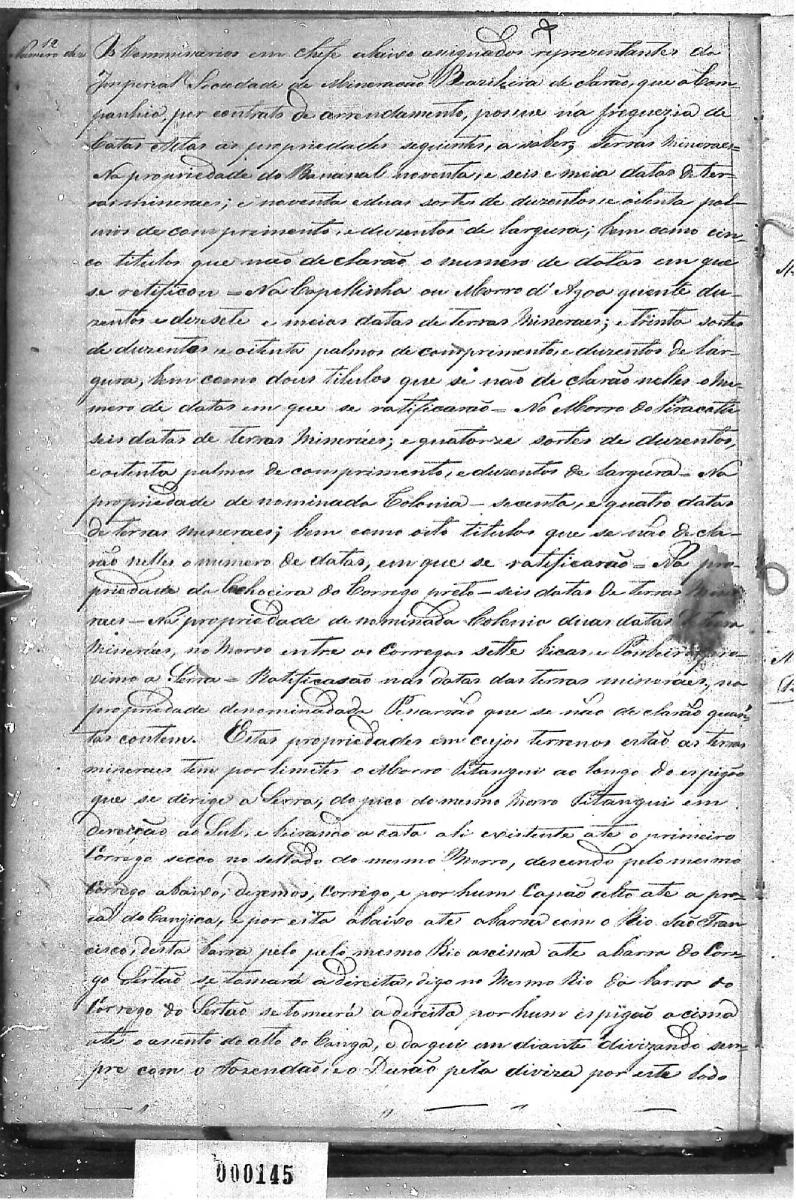 Numero 12
Os Commissarios em chefe abaixo assignados reprezentantes da
Imperial Sociedade de Mineracão Brazileira declarão, que a Com-
panhia, por contrato de arrendamento, possue na freguezia de
Catas Altas as propriedades seguintes, a saber; Terras Mineraes-
Na propriedade do Bananal noventa, e seis e meia datas de ter-
ras mineraes; e noventa e duas sortes de duzentos e oitenta pal-
mos de comprimento, e duzentos de largura; bem como cin-
co titulos que não declarão o numero de datas em que
se retificou = Na Capellinha ou Morro d'Agoa quente du-
zentos e dezsete e meias datas de terras Mineraes; e trinta sortes
de duzentos e oitenta palmos de comprimento, e duzentos de lar-
gura, bem como dous titulos que se não declarão nelles o nu-
mero de datas em que se ratificarão = No Morro do Piracatti
seis datas de terras Mineráes; e quatorze sortes de duzentos,
e oitenta palmos de comprimento, e duzentos de largura = Na
propriedade denominada Colonia - secenta, e quatro datas
de terras mineraes; bem como oito titulos que se não decla-
rão nelles o numero de datas, em que se ratificarão = Na pro-
priedade da Cachoeira do Corrego preto - seis datas de terras Mine-
raes - Na propriedade denominada Colonia duas datas de terra
Mineráes, no Morro entre os Corregos sette bicas e
ximo a Serra = Ratificasão nas datas das terras mineráes, na
propriedade denominadada que se não declarão quan-
tas contem. Estas propriedades em cujos terrenos estão as terras
mineraes tem por limites o Morro Pitangui ao longo do espigão
que se dirige a Serra, do pico do mesmo Morro Pitangui em
direição ao Sul, e beirando a cata ali existente até o primeiro
Corrego secco no do mesmo Morro, descendo pelo mesmo
Corrego abaixo, dizemos, Corrego, e por hum Capão alto até a
do Cangica, e por esta abaixo até a barra com o Rio São Fran-
cisco, desta barra pelo pelo mesmo Rio ascima até a barra do Corre-
go Sertão se tomará a direita, digo no Mesmo Rio da barra do
Corrego do Sertão se tomará a direita por hum espigão acima
até o assento do alto do Canga, e daqui em diante divizando sem-
pre com o Fazendão, e o Durão pela diviza por este lado
000145